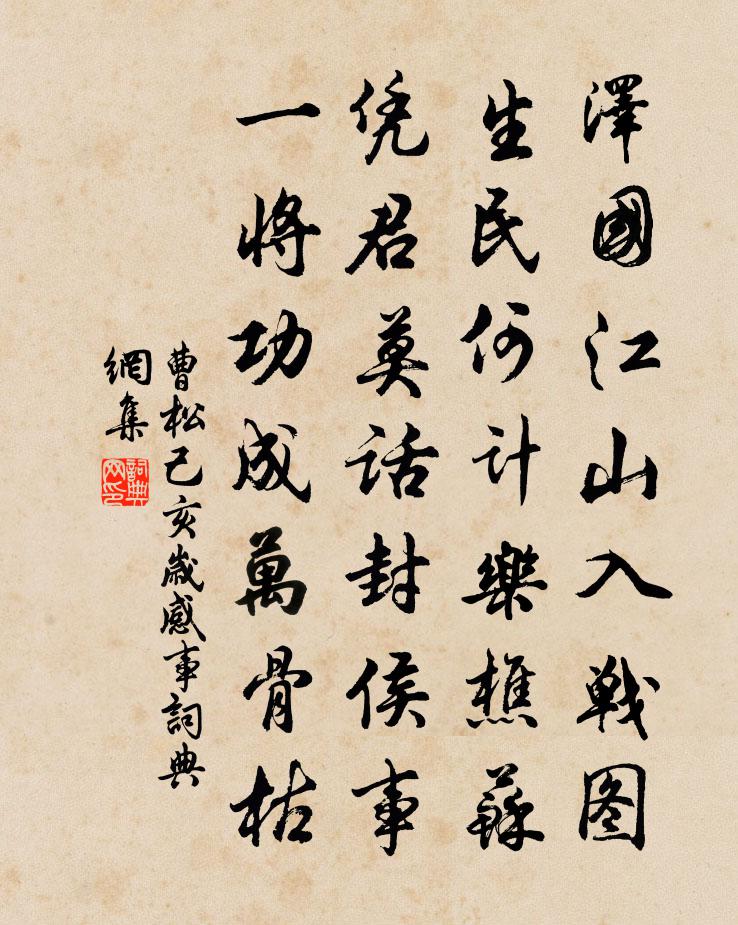 澤國江山入戦图
生民何计樂樵蘇
凭君莫话封侯事
一将功成萬骨枯
曹松己亥歲感事詞典
網集
詞典网印